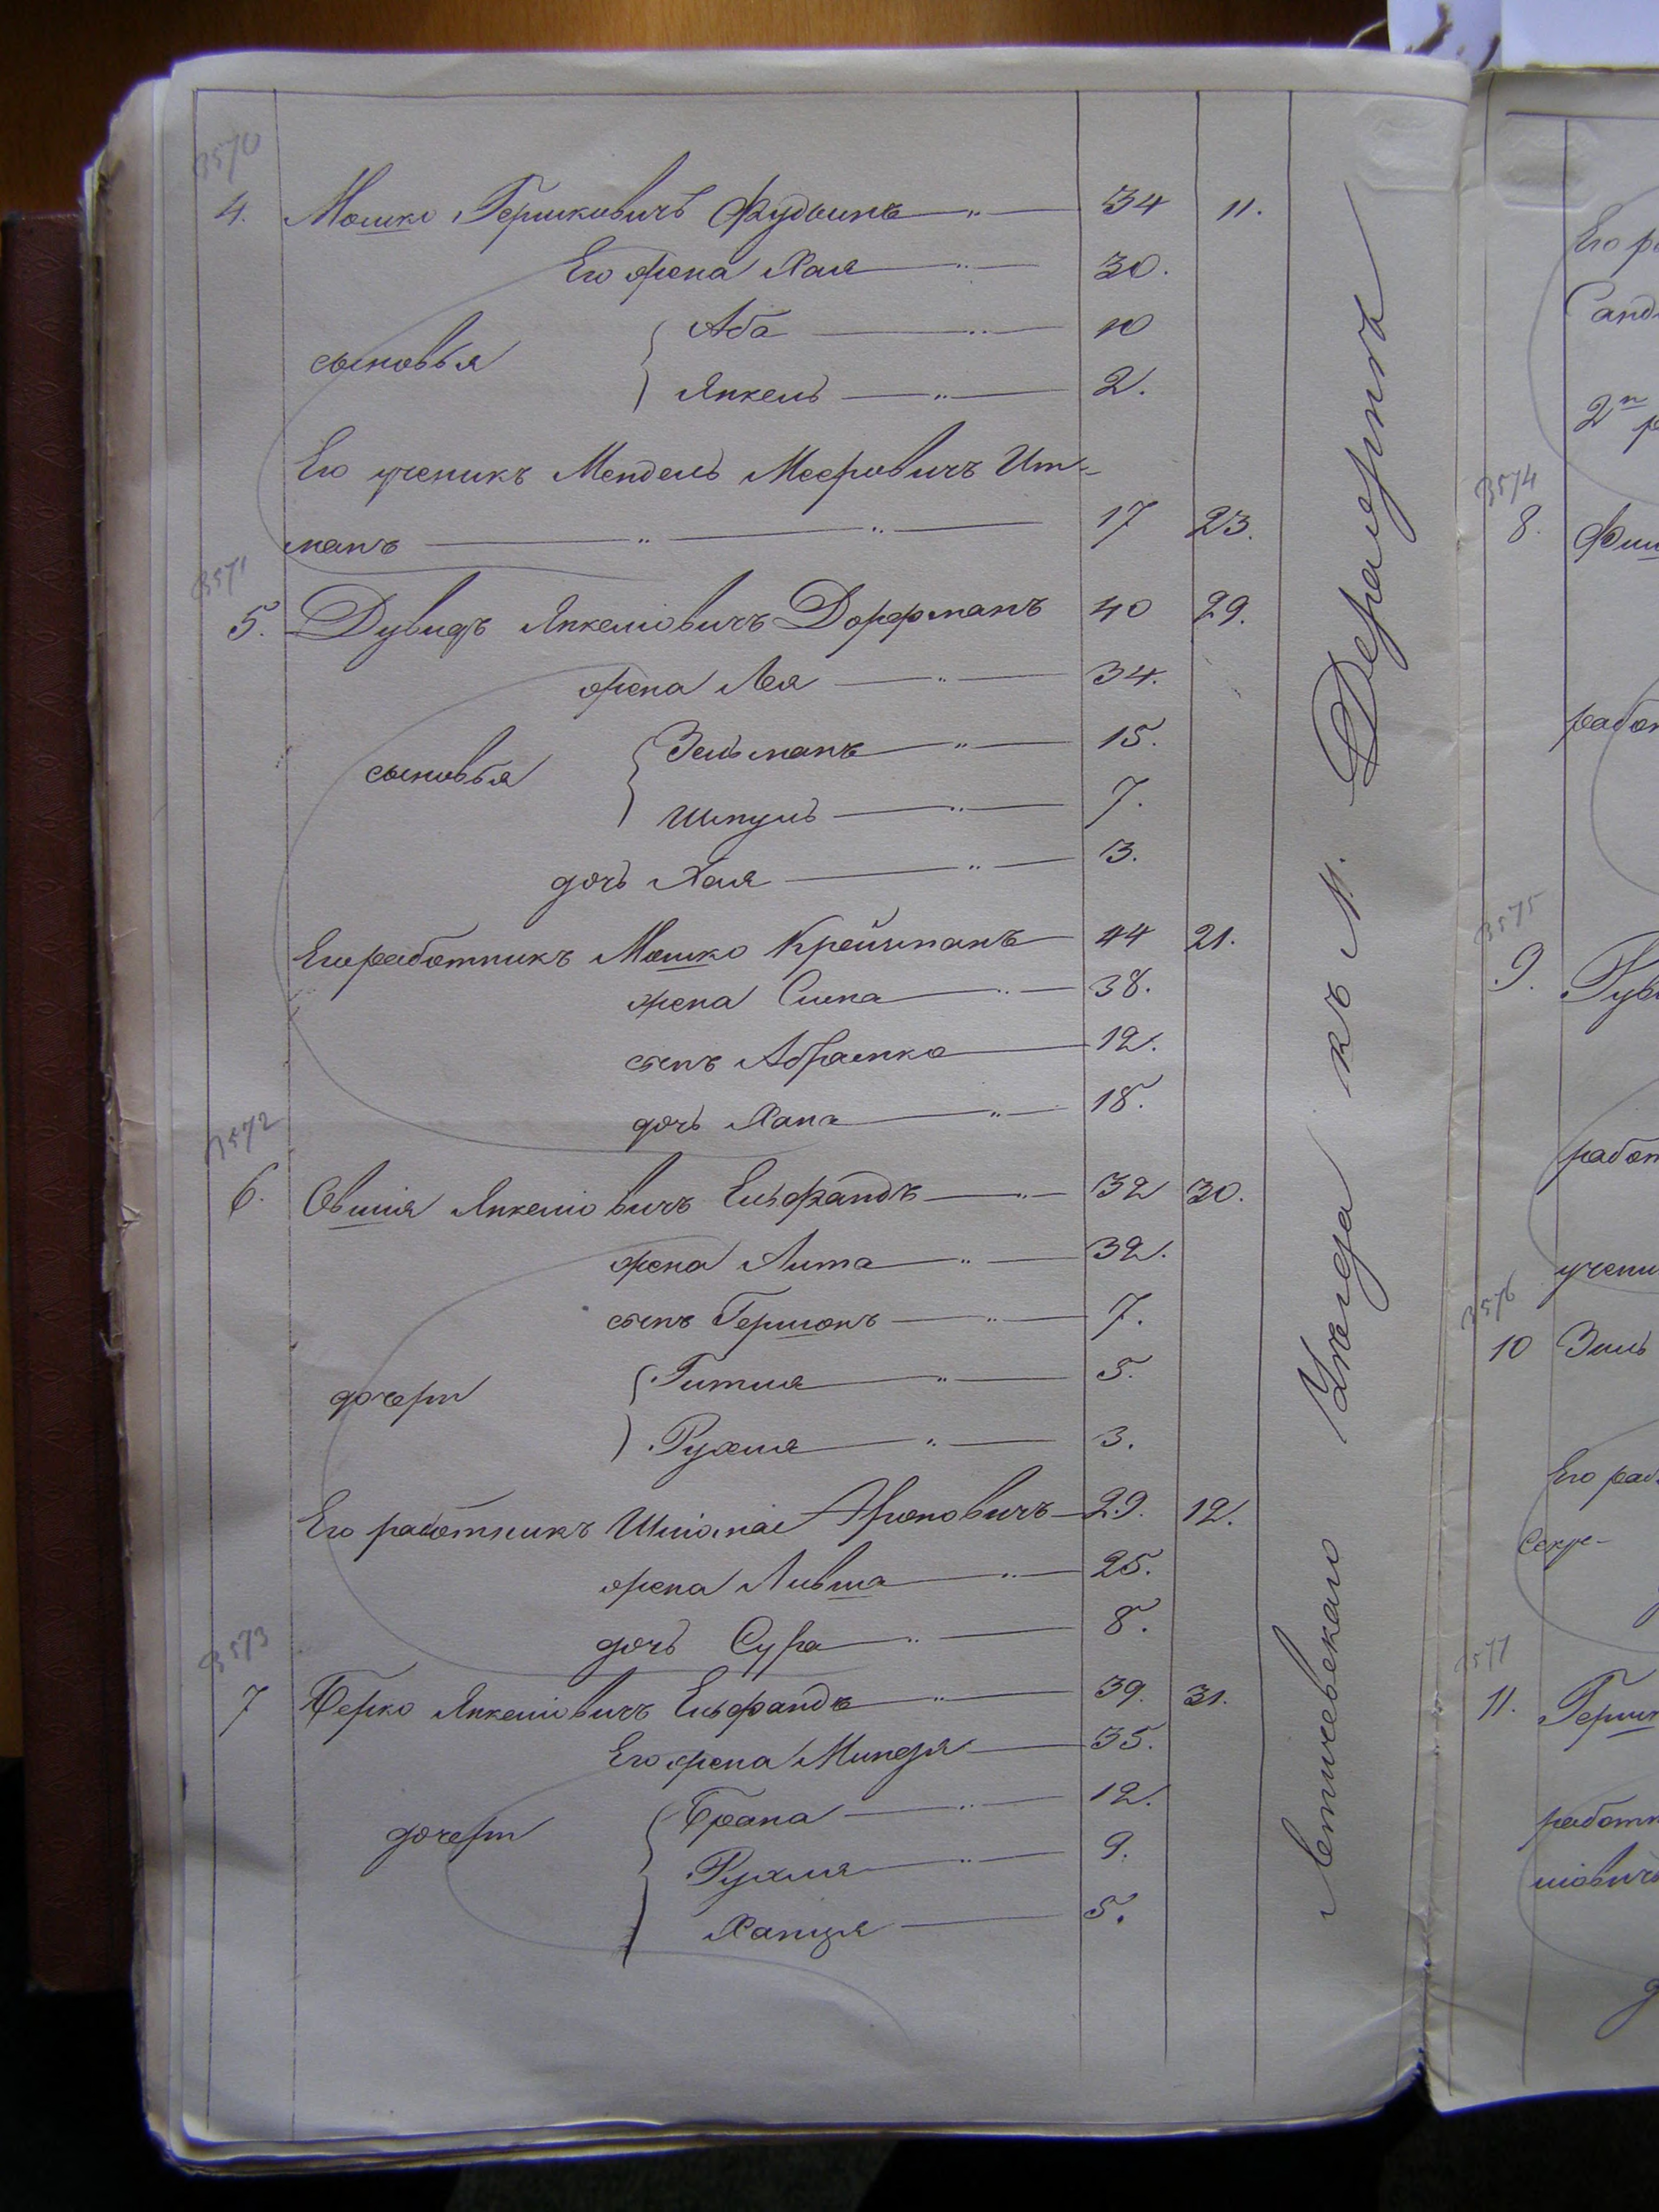 3570
4. Мошко Гершковичъ Фудынъ — " — 34 11.
Его жена Хая — " — 30.
сыновья { Аба — " — 10
Янкель — " — 2.
Его ученикъ Мендель Мееровичъ Ит-
манъ — " — " — 17 23.
3571
5. Дувидъ Янкеліовичъ Дорфманъ 40 29.
жена Лея — " — 34.
сыновья { Зельманъ — " — 15.
Шмуль — " — 7.
дочь Хая — " — 3.
Его работникъ Мошко Крейчманъ — 44 21.
жена Сима — " — 38.
сынъ Абрамко — 12.
дочь Хана — " — 18.
3572
6. Овшія Янкеліовичъ Ельфандъ — " — 32 30.
жена Лита — " — 32.
сынъ Гершонъ — " — 7.
дочери { Гитля — " — 5.
Рухля — " — 3.
Его работникъ Шліома Ароновичъ — 29. 12.
жена Ливша — " — 25.
дочь Сура — " — 8.
3573
7 Берко Янкеліовичъ Ельфандъ — " — 39. 31.
Его жена Миндя — 35.
дочери { Брана — " — 12.
Рухля — " — 9.
Ханця — 5.
Летичевскаго Уѣзда въ М. Деражнѣ
Его ра
2й
3574
8. Фиш
работ
3575
9.
работ
учени
3576
10 Зель
Его раб
11. Герш
работн
ліовичъ